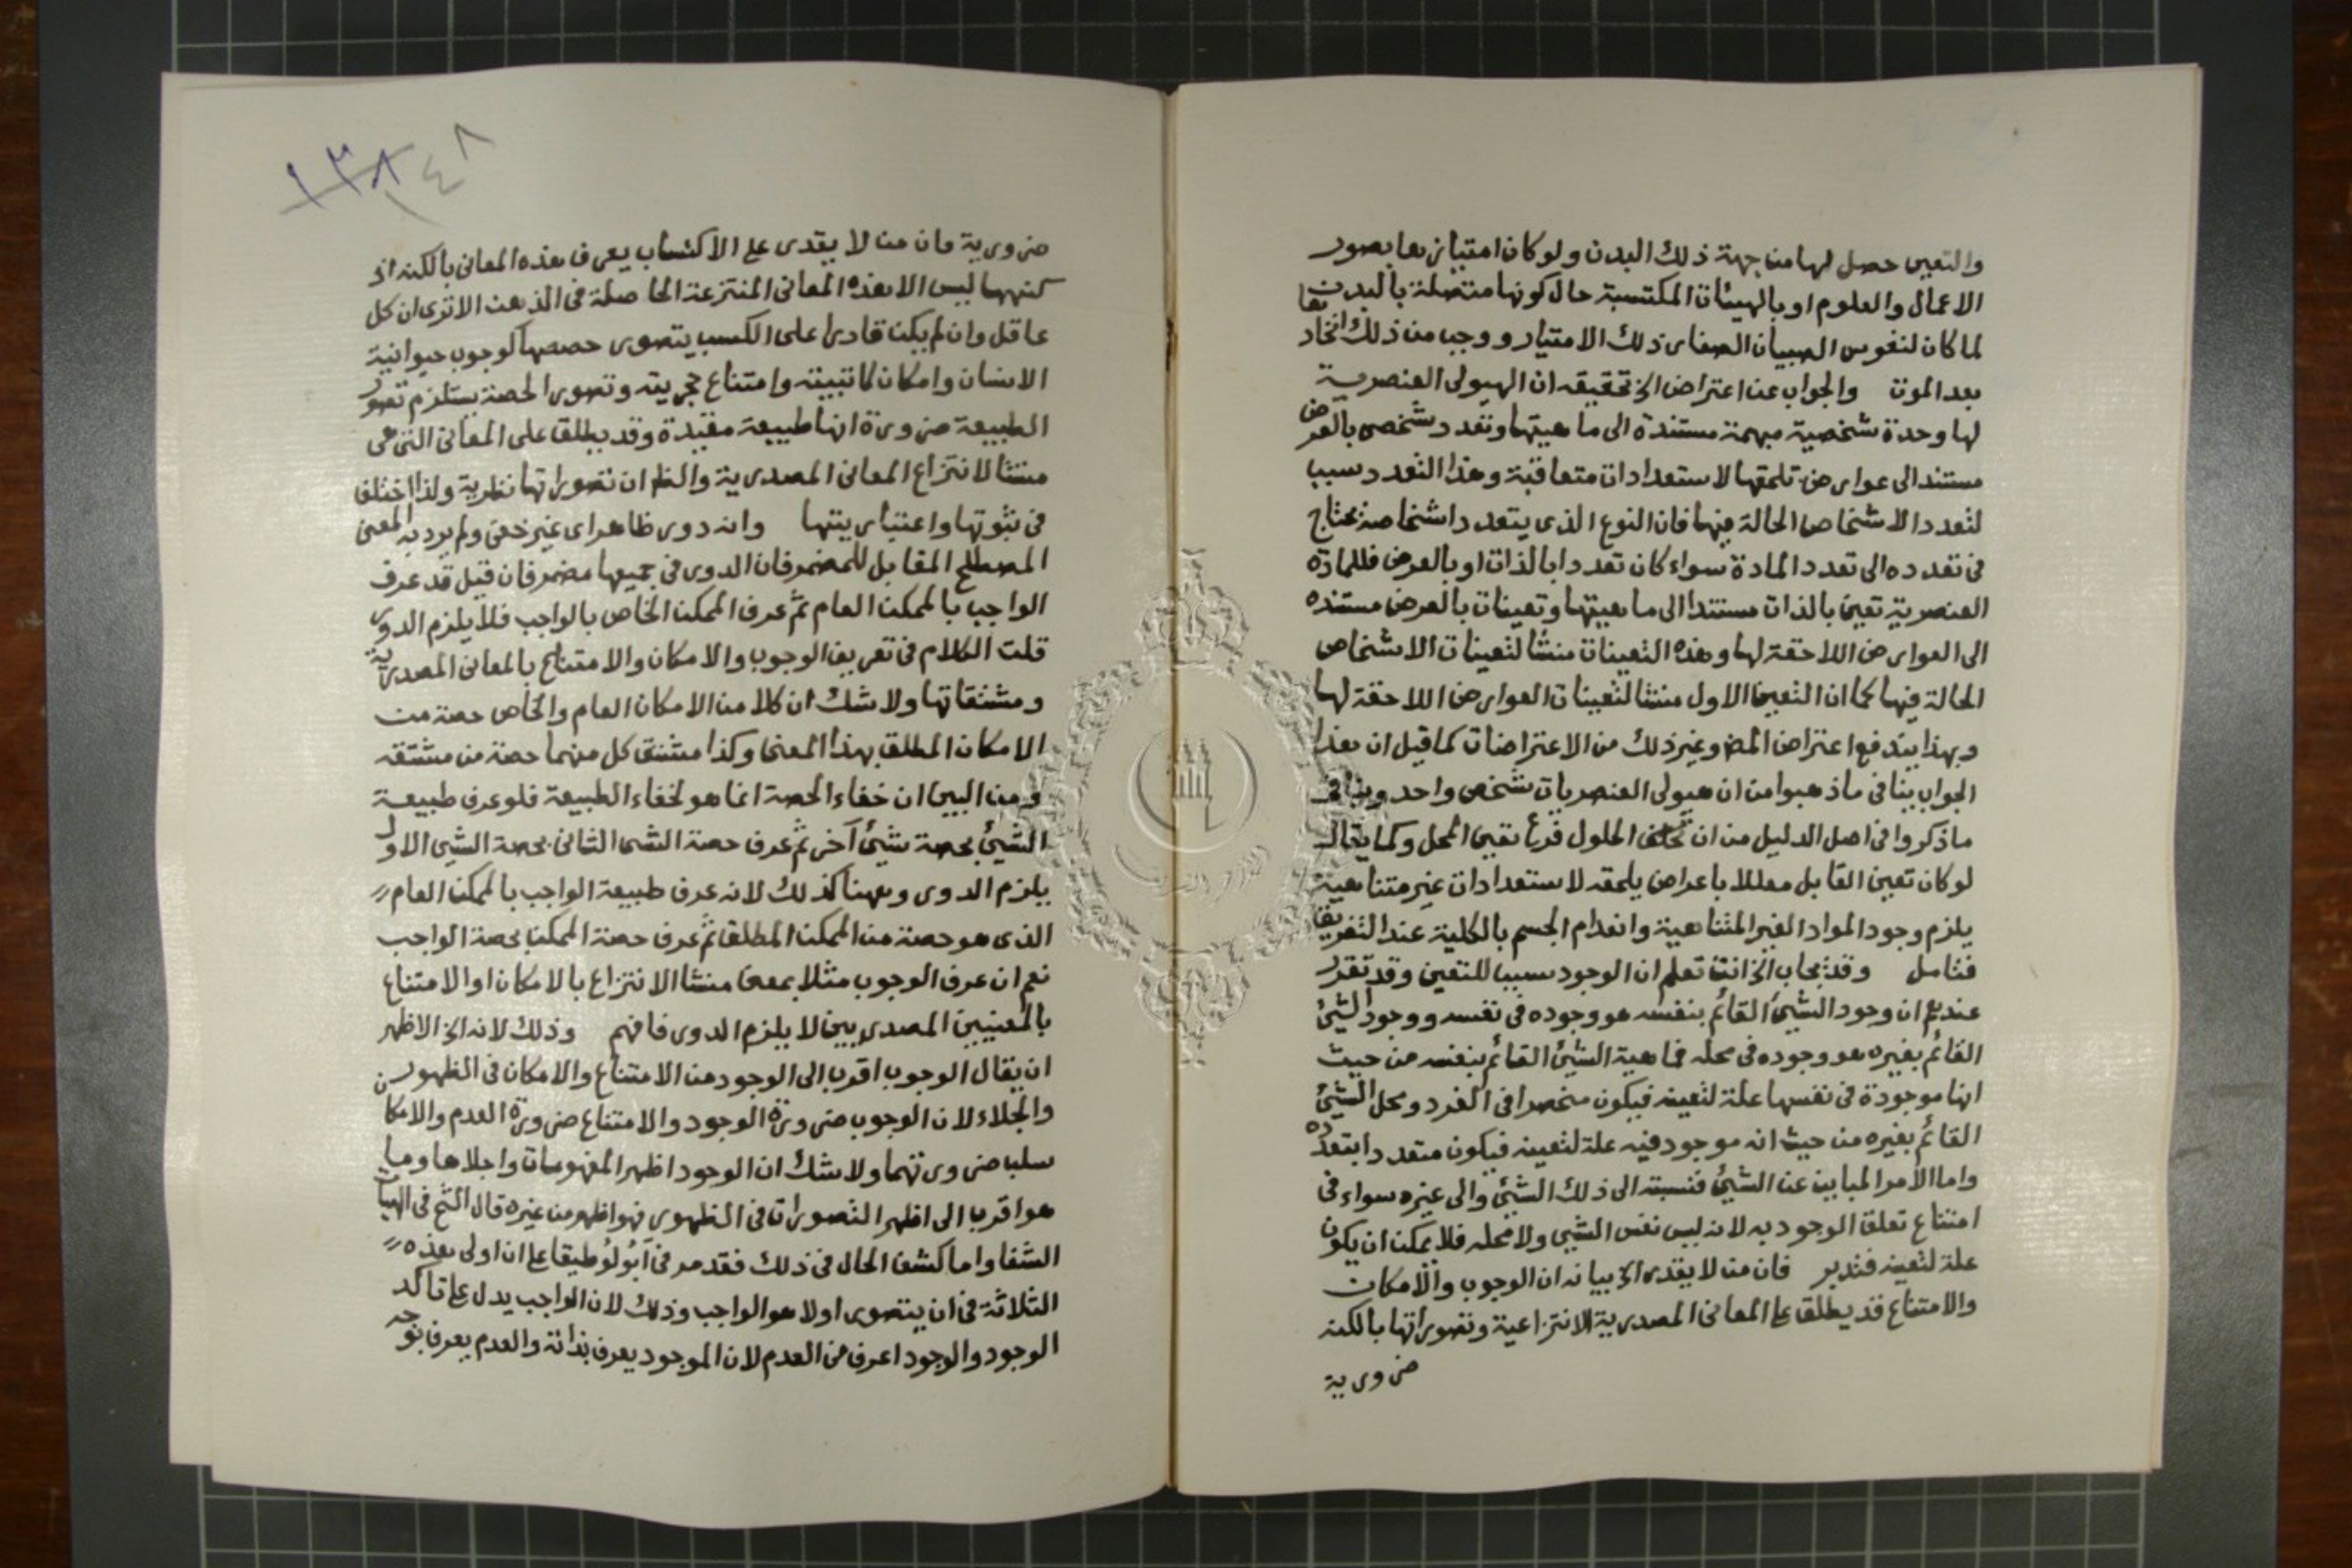 والتعين حصل لها من جهة ذلك البدن ولو كان امتيازها بصور
الاعمال والعلوم او بالهيئات المكتسبة حال كونها متصلة بالبدن
لما كان لنفوس الصبيان الصغار ذلك الامتياز ووجب من ذلك اتحادها
بعد الموت والجواب عن اعتراض الخ تحقيقه ان الهيولى العنصرية
لها وحدة شخصية مبهمة مستندة الى ماهيتها وتعدد شخصى بالعرض
مستند الى عوارض تلحقها لاستعدادات متعاقبة وهذا التعدد سبب
لتعدد الاشخاص الحالة فيها فان النوع الذى يتعدد اشخاصه يحتاج
فى تعدده الى تعدد المادة سواء كان تعددا بالذات او بالعرض فللمادة
العنصرية تعين بالذات مستندا الى ماهيتها وتعينات بالعرض مستنده
الى العوارض اللاحقة لها وهذه التعينات منشأ لتعينات الاشخاص
الحالة فيها كما ان التعين الاول منشا لتعينات العوارض اللاحقة لها
وبهذا يندفع اعتراض المض وغير ذلك من الاعتراضات كما قيل ان هذا
الجواب ينافى ما ذهبوا من ان هيولى العنصريات شخص واحد وينافى
ما ذكروا فى اصل الدليل من ان الحلول فرع تعين المحل وكما يقال
لو كان تعين القابل معللا باعراض يلحقه لاستعدادات غير متناهية
يلزم وجود المواد الغير المتناهية وانعدام الجسم بالكلية عند التفريق
فتامل وقد يجاب الخ انت تعلم ان الوجود سببا للتعين وقد تقرر
عندهم ان وجود الشيئ القائم بنفسه هو وجوده فى نفسه ووجود الشيئ
القائم بغيره هو وجوده فى محله فماهية الشيئ القائم بنفسه من حيث
انها موجودة فى نفسها علة لتعينه فيكون منحصرا فى الفرد ومحل الشيئ
القائم بغيره من حيث انه موجود فيه علة لتعينه فيكون متعددا بتعدده
واما الامر المباين عن الشيئ فنسبته الى ذلك الشيئ والى غيره سواء فى
امتناع تعلق الوجود به لانه ليس نفس الشيى ولا محله فلا يمكن ان يكون
علة لتعينه فتدبر فان من لا يقدر الخ بيانه ان الوجوب والامكان
والامتناع قد يطلق على المعانى المصدرية الانتزاعية وتصوراتها بالكنه
ضرورية
١٣٨
١٤٨
ضرورية فان من لا يقدر على الاكتساب يعرف هذه المعانى بالكنه اذ
كنهها ليس الا هذه المعانى المنتزعة الحاصلة فى الذهن الا ترى ان كل
عاقل وان لم يكن قادرا على الكسب يتصور حصصها كوجوب حيوانية
الانسان وامكان كاتبيته وامتناع حجريته وتصور الحصة يستلزم تصور
الطبيعة ضرورة انها طبيعة مقيدة وقد يطلق على المعانى التى هى
منشا لانتزاع المعانى المصدرية والظ ان تصوراتها نظرية ولذا اختلف
فى ثبوتها واعتباريتها وانه دور ظاهر اى غير خفى ولم يرد به المعنى
المصطلح المقابل للمضمر فان الدور فى جميعها مضمر فان قيل قد عرف
الواجب بالممكن العام ثم عرف الممكن الخاص بالواجب فلا يلزم الدور
قلت الكلام فى تعريف الوجوب والامكان والامتناع بالمعانى المصدرية
ومشتقاتها ولا شك ان كلا من الامكان العام والخاص حصة من
الامكان المطلق بهذا المعنى وكذا مشتق كل منهما حصة من مشتقه
ومن البين ان خفاء الحصة انما هو لخفاء الطبيعة فلو عرف طبيعة
الشيئ بحصة شيئ آخر ثم عرف حصة الشى الثانى بحصة الشيى الاول
يلزم الدور وههنا كذلك لانه عرف طبيعة الواجب بالممكن العام
الذى هو حصة من الممكن المطلق ثم عرف حصة الممكن بحصة الواجب
نعم ان عرف الوجوب مثلا بمعنى منشا الانتزاع بالامكان او الامتناع
بالمعنيين المصدريين لا يلزم الدور فافهم وذلك لانه الخ الاظهر
ان يقال الوجوب اقرب الى الوجود من الامتناع والامكان فى الظهور
والجلاء لان الوجوب ضرورة الوجود والامتناع ضرورة العدم والامكان
سلب ضرورتهما ولا شك ان الوجود اظهر المفهومات واجلاها وما
هو اقرب الى اظهر التصورات فى الظهور فهو اظهر من غيره قال الشخ فى الهيات
الشفا واما كشف الحال فى ذلك فقد مر فى انولوطيقا على ان اولى هذه
الثلاثة فى ان يتصور اولا هو الواجب وذلك لان الواجب يدل على تاكد
الوجود والوجود اعرف من العدم لان الموجود يعرف بذاته والعدم يعرف بوجه